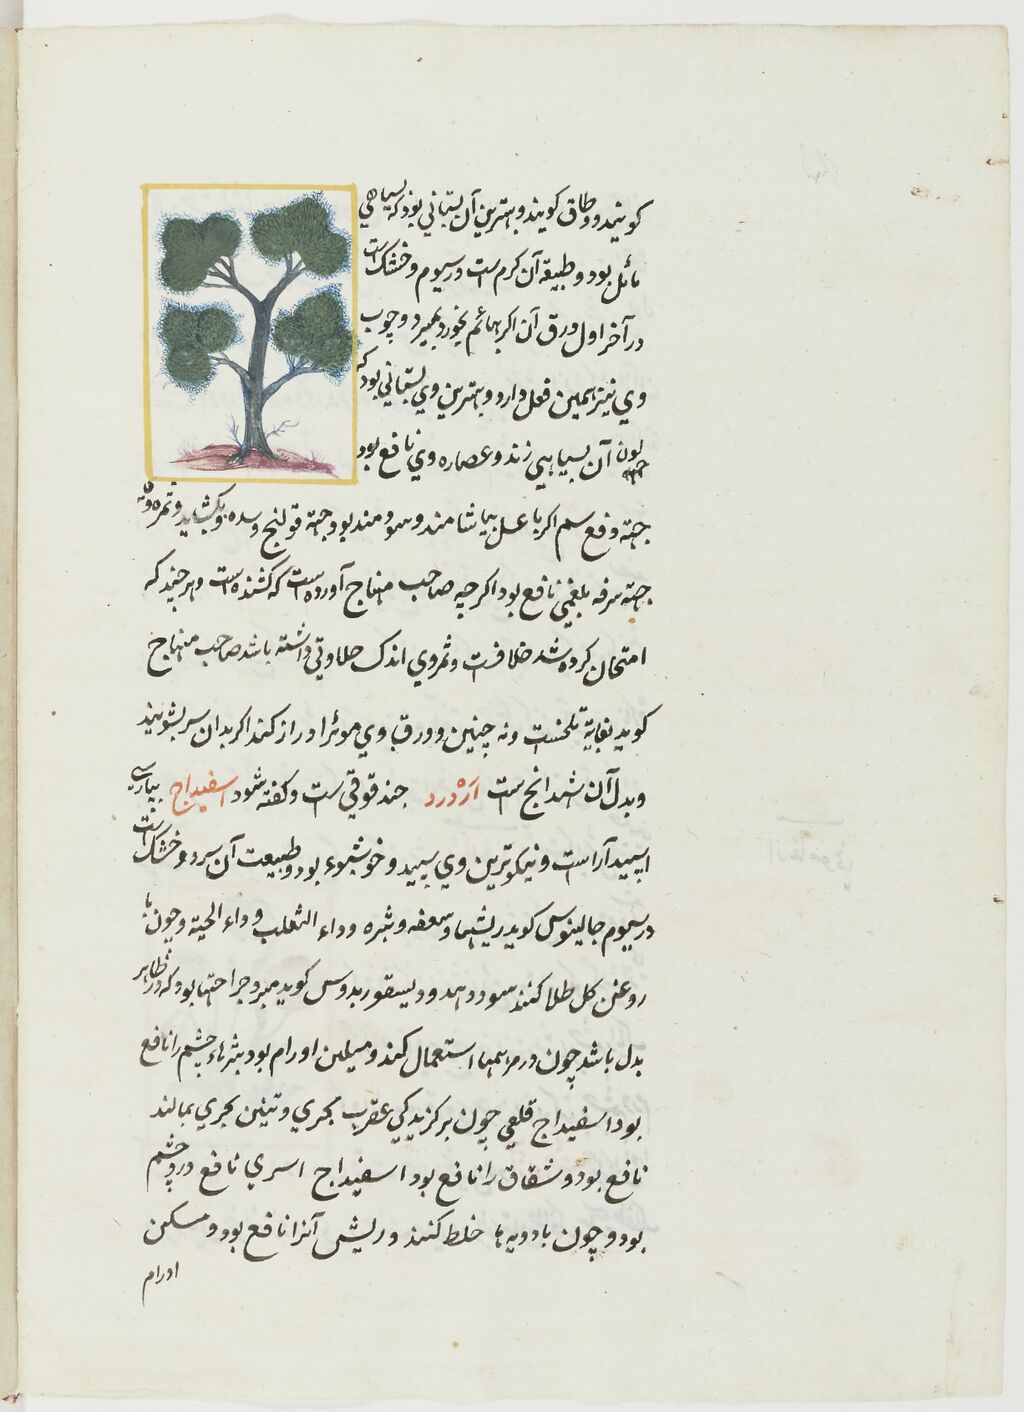 کویند و وطاق کویند و بهترین آن بستانی بود که بسیاهی
مائل بود و طبیعة آن کرم است در سیوم و خشک است
در آخر اول ورق آن اکر بهائم بخورد بمیرد و چوب
وی نیز همین فعل دارد و بهترین وی بستانی بود که
لون آن بسیاهی زند و عصاره وی نافع بود
جهة دفع سم اکر با عسل بیاشامند و سودمند بود جهة قولنج و سده بکشاید و ثمره وی
جهة سرفه بلغمی نافع بود اکرچه صاحب منهاج آورده است که کشنده است و هر چند که
امتحان کرده شد خلافست و ثمر وی اندک حلاوتی داشته باشد صاحب منهاج
کوید بغایة تلخست و نه چنین و ورق وی موئرا دراز کند اکر بدان سر بشویند
و بدل آن شهدانج است ازدرد حندقوقی است و کفته شود اسفیداج بپارسی
اسپید آراست و نیکوترین وی سپید و خوشبوء بود و طبیعت آن سرد و خشک است
در سیوم جالینوس کوید ریشها و سعفه و بثره و داء الثعلب و داء الحیة و چون با
روغن کل طلا کنند سود دهد و دیسقوریدوس کوید مبرد جراحتها بود که در ظاهر
بدل باشد چون در مرهمها استعمال کنند و ملین اورام بود بثرهاء چشم را نافع
بود اسفیداج قلعی چون بر کزیدکی عقرب بحری و تنین بحری بمالند
نافع بود و شقاق را نافع بود اسفیداج اسربی نافع درد چشم
بود و چون با دویه ها خلط کنند و ریش آنرا نافع بود و مسکن
اورام